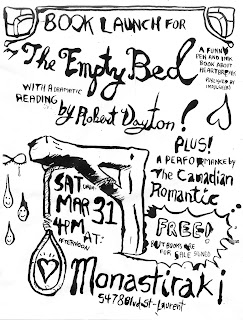 BOOK LAUNCH FOR
The Empty Bed
A FUNNY
PEN AND INK
BOOK ABOUT
HEARTBREAK
PUBLISHED BY
WITH A DRAMATIC
READING
by Robert Dayton!
PLUS!
A PERFORMANCE by
The Canadian
Romantic
SAT
MAR 31
4PM AT:
AFTERNOON
FREE!
BUT BOOKS BE
FOR SALE
Monastiraki
5478 Blvd St-Laurent